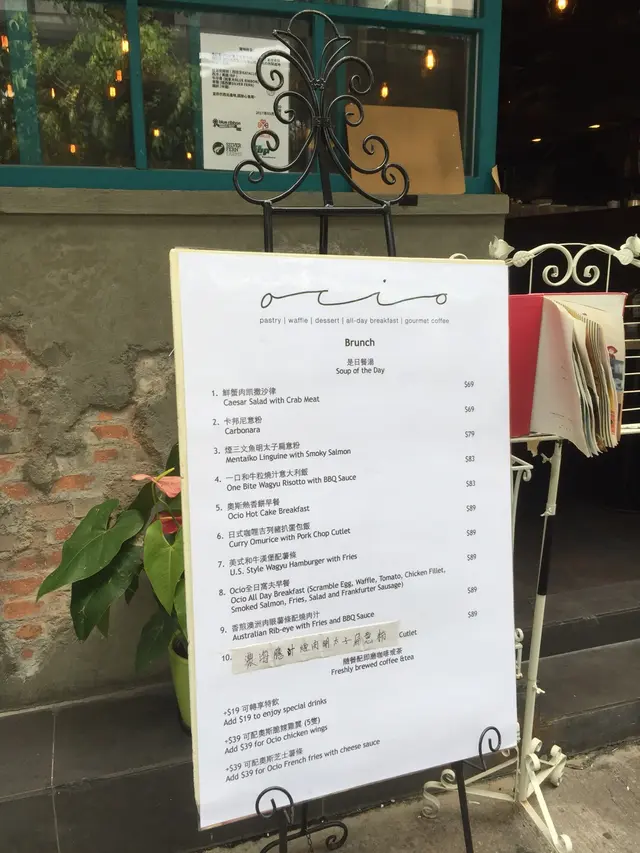 ocio
pastry | waffle | dessert | all-day breakfast | gourmet coffee
Brunch
是日餐湯
Soup of the Day
1. 鮮蟹肉凱撒沙律 $69
Caesar Salad with Crab Meat
2. 卡邦尼意粉 $69
Carbonara
3. 煙三文魚明太子扁意粉 $79
Mentaiko Linguine with Smoky Salmon
4. 一口和牛粒燒汁意大利飯 $83
One Bite Wagyu Risotto with BBQ Sauce
5. 奧斯熱香餅早餐 $83
Ocio Hot Cake Breakfast
6. 日式咖喱吉列豬扒蛋包飯 $89
Curry Omurice with Pork Chop Cutlet
7. 美式和牛漢堡配薯條 $89
U.S. Style Wagyu Hamburger with Fries
8. Ocio全日窩夫早餐 $89
Ocio All Day Breakfast (Scramble Egg, Waffle, Tomato, Chicken Fillet,
Smoked Salmon, Fries, Salad and Frankfurter Sausage) $89
9. 香煎澳洲肉眼薯條配燒肉汁 $89
Australian Rib-eye with Fries and BBQ Sauce
10.
Cutlet
隨餐配即磨咖啡或茶
Freshly brewed coffee &tea
+$19 可轉享特飲
Add $19 to enjoy special drinks
+$39 可配奧斯酷辣雞翼 (5隻)
Add $39 for Ocio chicken wings
+$39 可配奧斯芝士薯條
Add $39 for Ocio French fries with cheese sauce